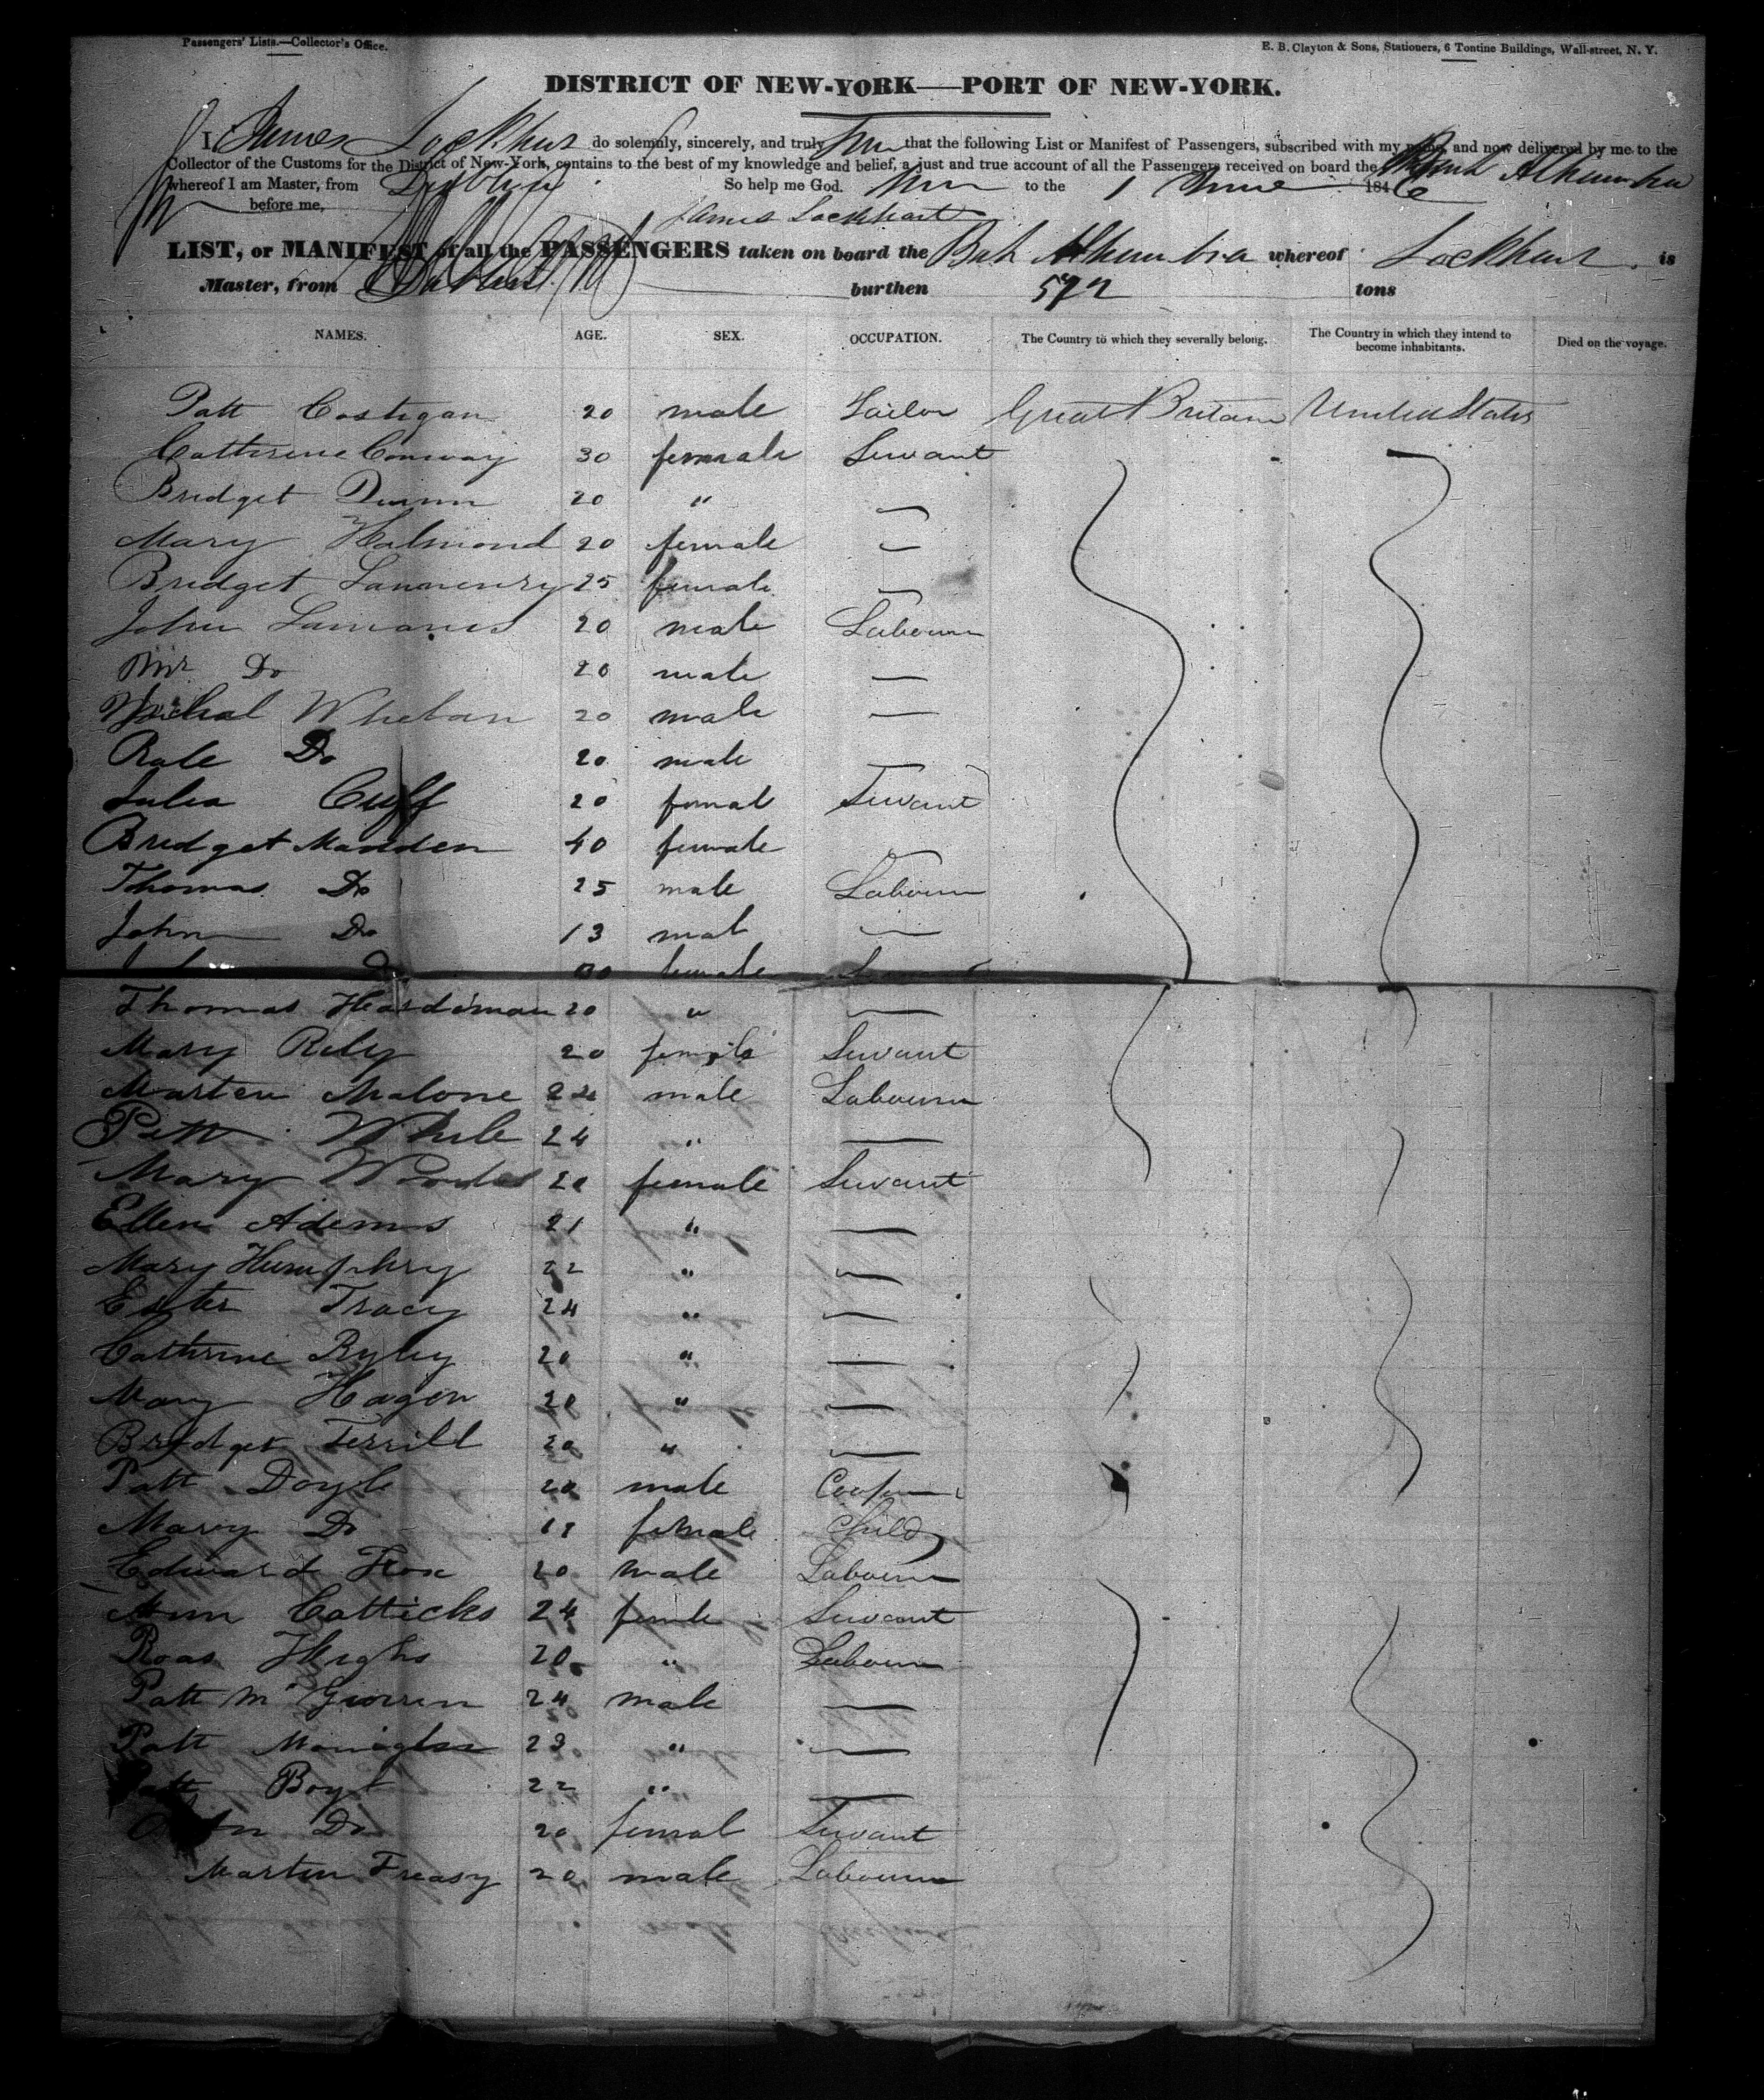 Passengers' Lists.—Collector's Office.
E. B. Clayton & Sons, Stationers, 6 Tontine Buildings, Wall-street, N. Y.
DISTRICT OF NEW-YORK—PORT OF NEW-YORK.
I, James Lockhart do solemnly, sincerely, and truly that the following List or Manifest of Passengers, subscribed with my name, and now delivered by me to the
Collector of the Customs for the District of New-York, contains to the best of my knowledge and belief, a just and true account of all the Passengers received on board the Alhambra
whereof I am Master, from Dublin So help me God. to the 1 June 1846
before me,
James Lockhart
LIST, or MANIFEST of all the PASSENGERS taken on board the Alhambra whereof Lockhart is
Master, from burthen 572 tons
NAMES. AGE. SEX. OCCUPATION. The Country to which they severally belong. The Country in which they intend to become inhabitants. Died on the voyage.
Patt Costigan 20 male Tailor Great Britain United States
Catherine Conway 30 female Servant
Bridget Dunn 20 "
Mary Holmond 20 female
Bridget 25 female
John 20 male Labourer
Do 20 male
Whelan 20 male
Do 20 male
Julia Cuff 20 femal Servant
Bridget Madden 40 female
Thomas Do 25 male Labourer
John Do 13 mal
female
Thomas Hardiman 20 "
Mary Rily 20 female Servant
Marten Malone 22 male Labourer
Patt White 24 "
Mary Woods 20 female Servant
Ellen Adems 21 "
Mary Humphry 22 "
Ester Tracy 24 "
Cathrine Ryley 20 "
Mary Hagen 20 "
Bridget Terrill 20 "
Patt Doyle 20 male Cooper
Mary Do 11 female Child
Edward Fox 20 male Labourer
Ann Catticks 24 female Servant
Roas Highs 20 " Labourer
Patt 24 male
Patt 23 "
Patt Boyt 22 "
Do 20 femal Servant
Martin Freasy 20 male Labourer